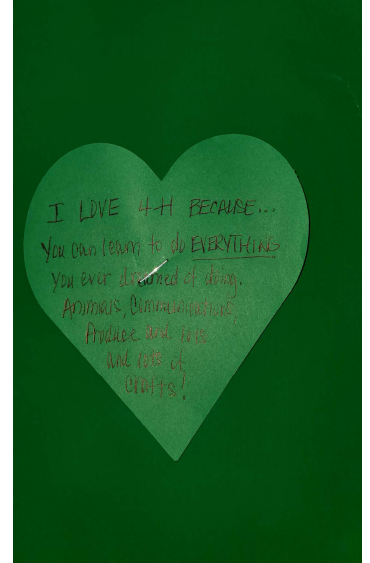 I LOVE 4-H BECAUSE...
You can learn to do EVERYTHING
you ever dreamed of doing.
Animals, Communications,
Produce and lots
and lots of
crafts!